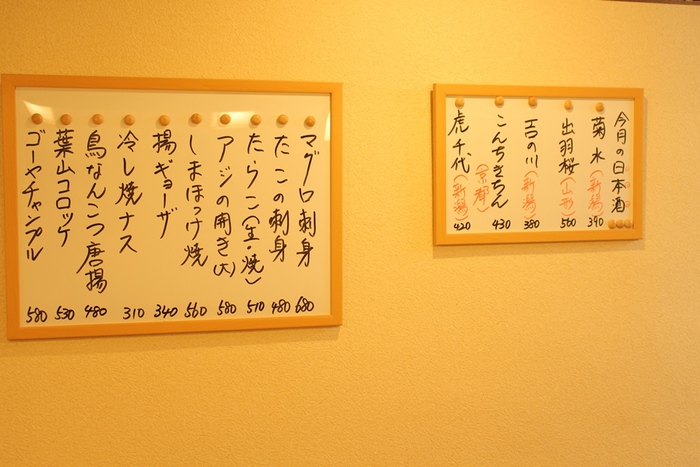 マグロ刺身 680
たこの刺身 480
たらこ(生・焼) 510
アジの開き(大) 580
しまほっけ焼 560
揚ギョーザ 340
冷し焼ナス 310
鳥なんこつ唐揚 480
葉山コロッケ 530
ゴーヤチャンプル 580
今月の日本酒
菊水(新潟) 390
出羽桜(山形) 560
吉の川(新潟) 380
こんちきちん(京都) 430
虎千代(新潟) 420